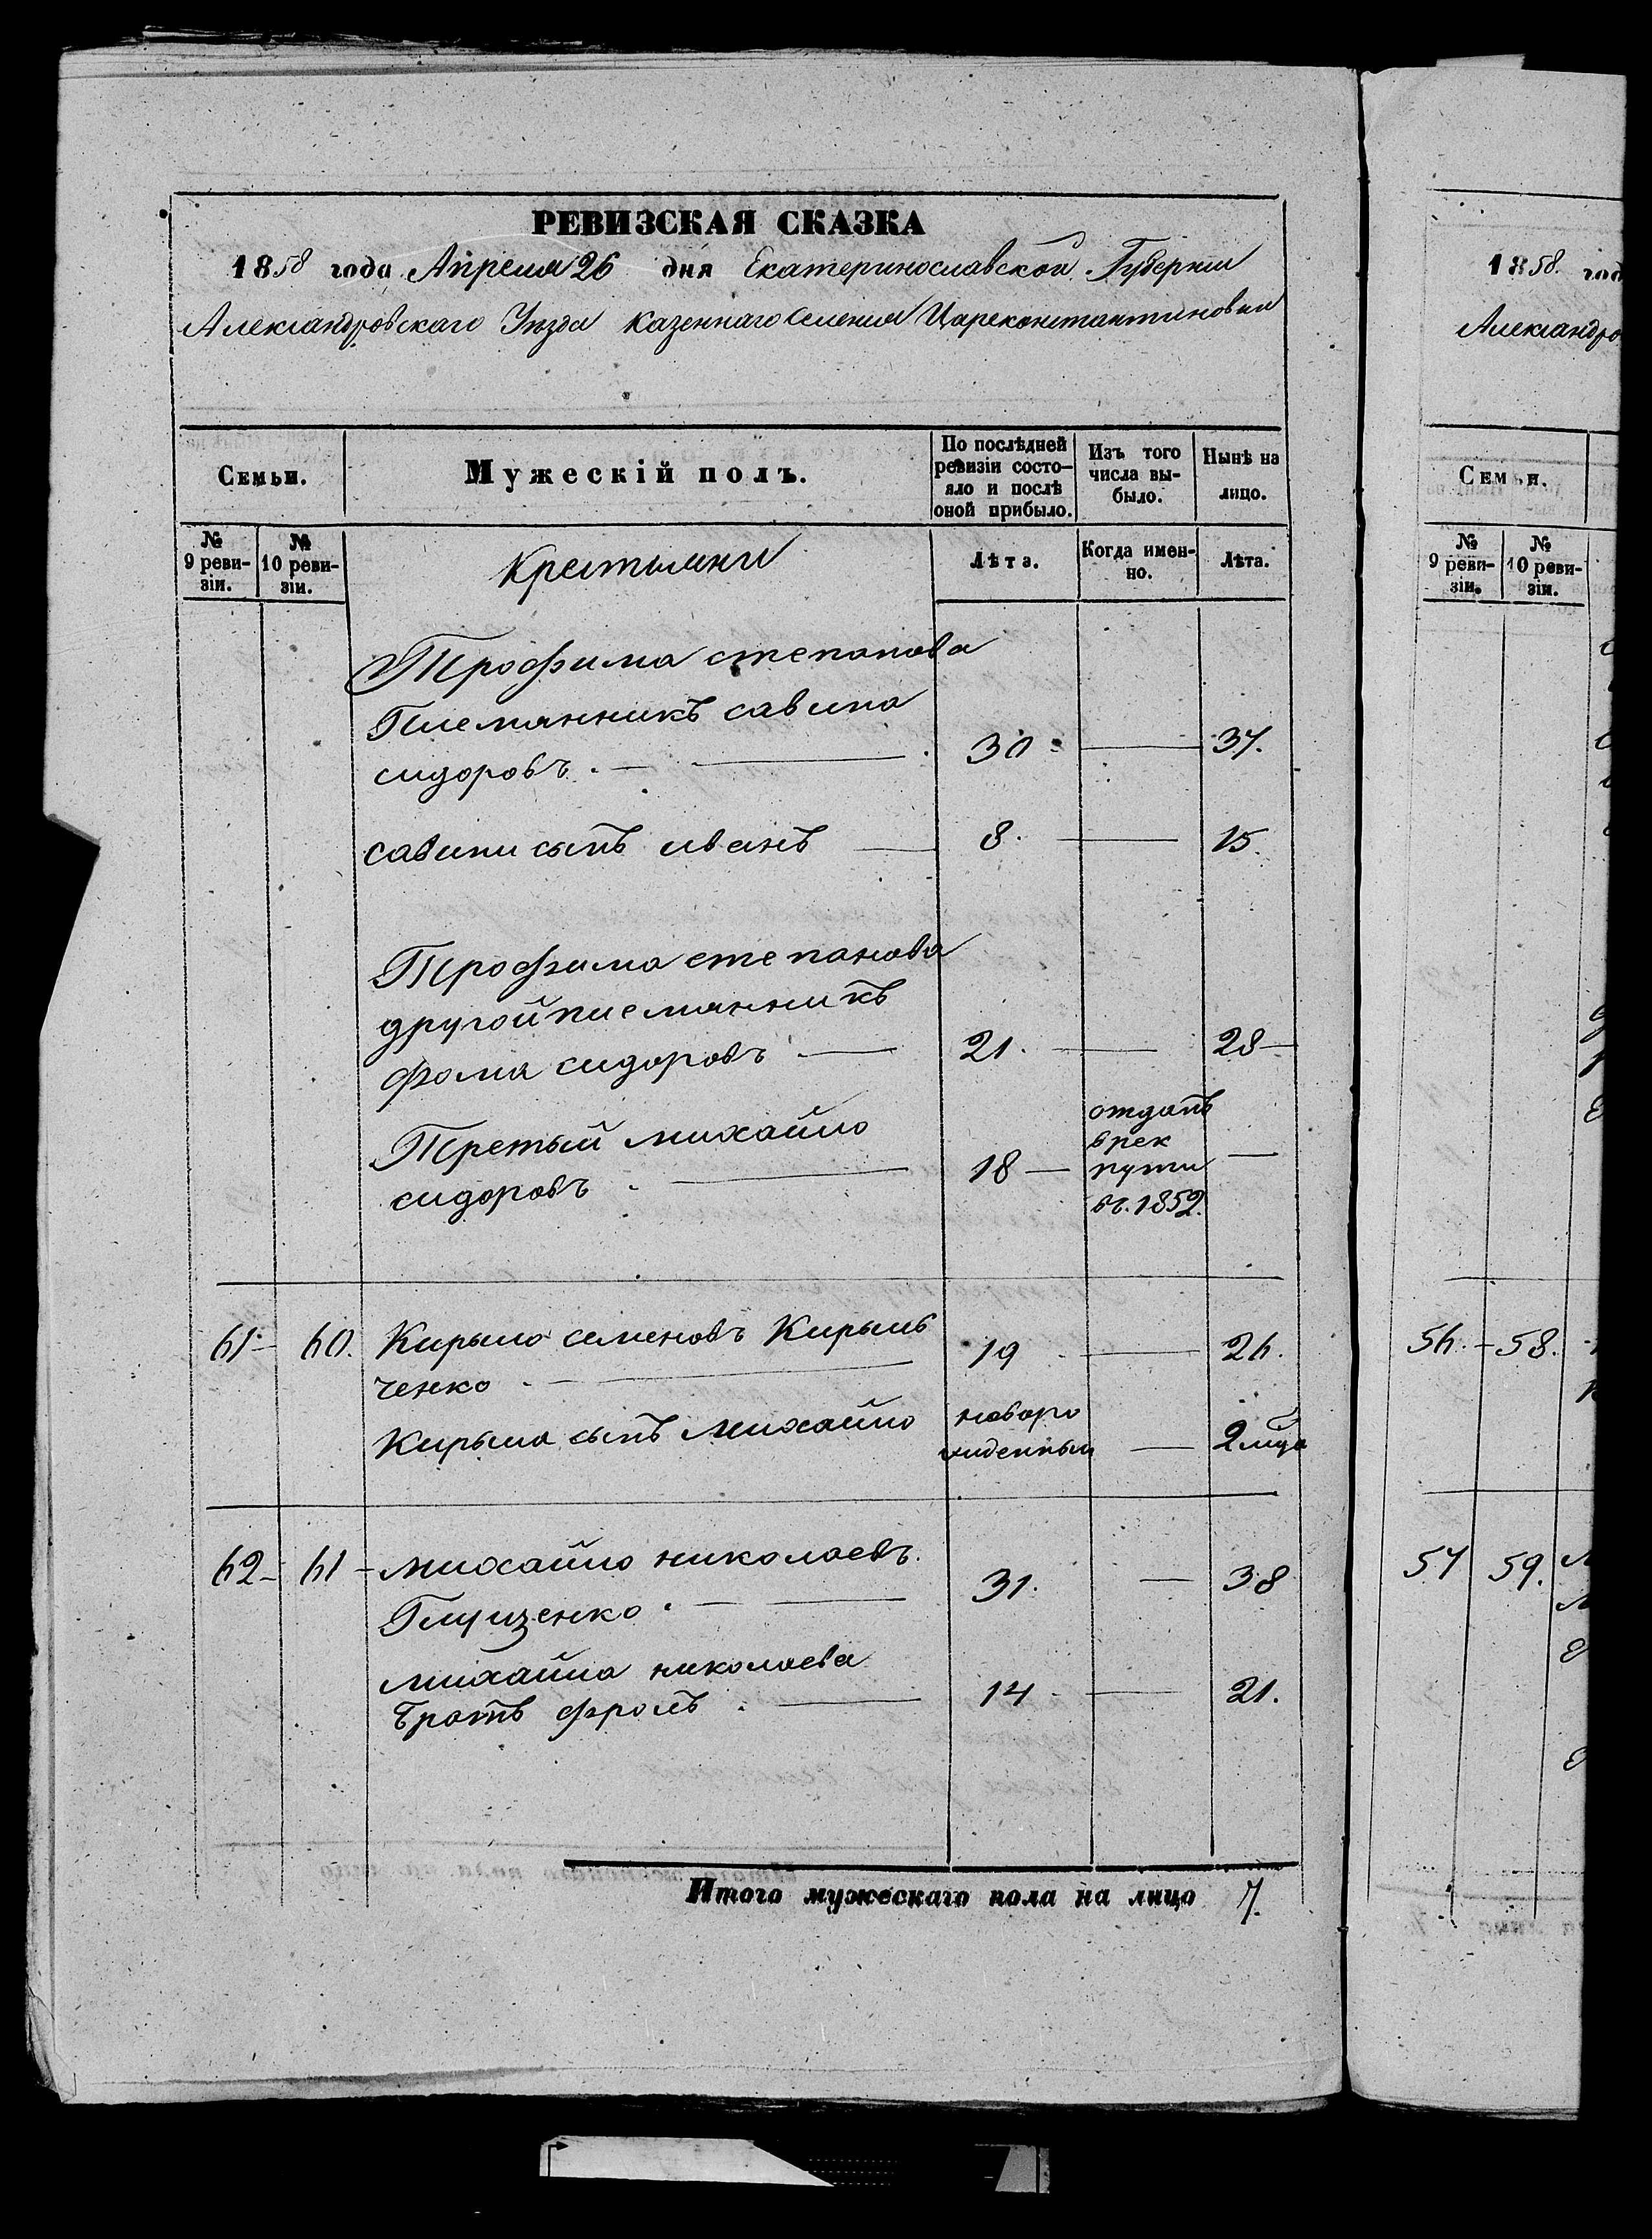 РЕВИЗСКАЯ СКАЗКА
1858 года Апреля 26 дня Екатеринославской Губернии
Александровскаго Уѣзда казеннаго селения Цареконстантиновки
Семьи.
Мужескій полъ.
По послѣдней ревизіи состо-
яло и послѣ
оной прибыло.
Изъ того
числа вы-
было.
Нынѣ на
лицо.
№
9 реви-
зіи.
№
10 реви-
зіи.
Крестьяни
Лѣта.
Когда имен-
но.
Лѣта.
Трофима степанова
Племянникъ савина
сидоровъ. 30 37.
савини сынъ иванъ 8. 15.
Трофима степанова
другой племянникъ
фома сидоровъ 21. 28
Третый михайло
сидоровъ 18
отданъ
в рек
рути
въ. 1852.
61 60. Кирыло семеновъ Кирыль
ченко 19 26.
Кирыла сынъ михайло
новоро
жденный
2 мцa
62 61 михайло николаевъ.
Глущенко 31. 38
михайла николаева
братъ фролъ 14 21.
Итого мужескаго пола на лицо 7.
1858. год
Александро
Семьи.
№
9 реви-
зіи.
№
10 реви-
зіи.
56. 58.
57 59.